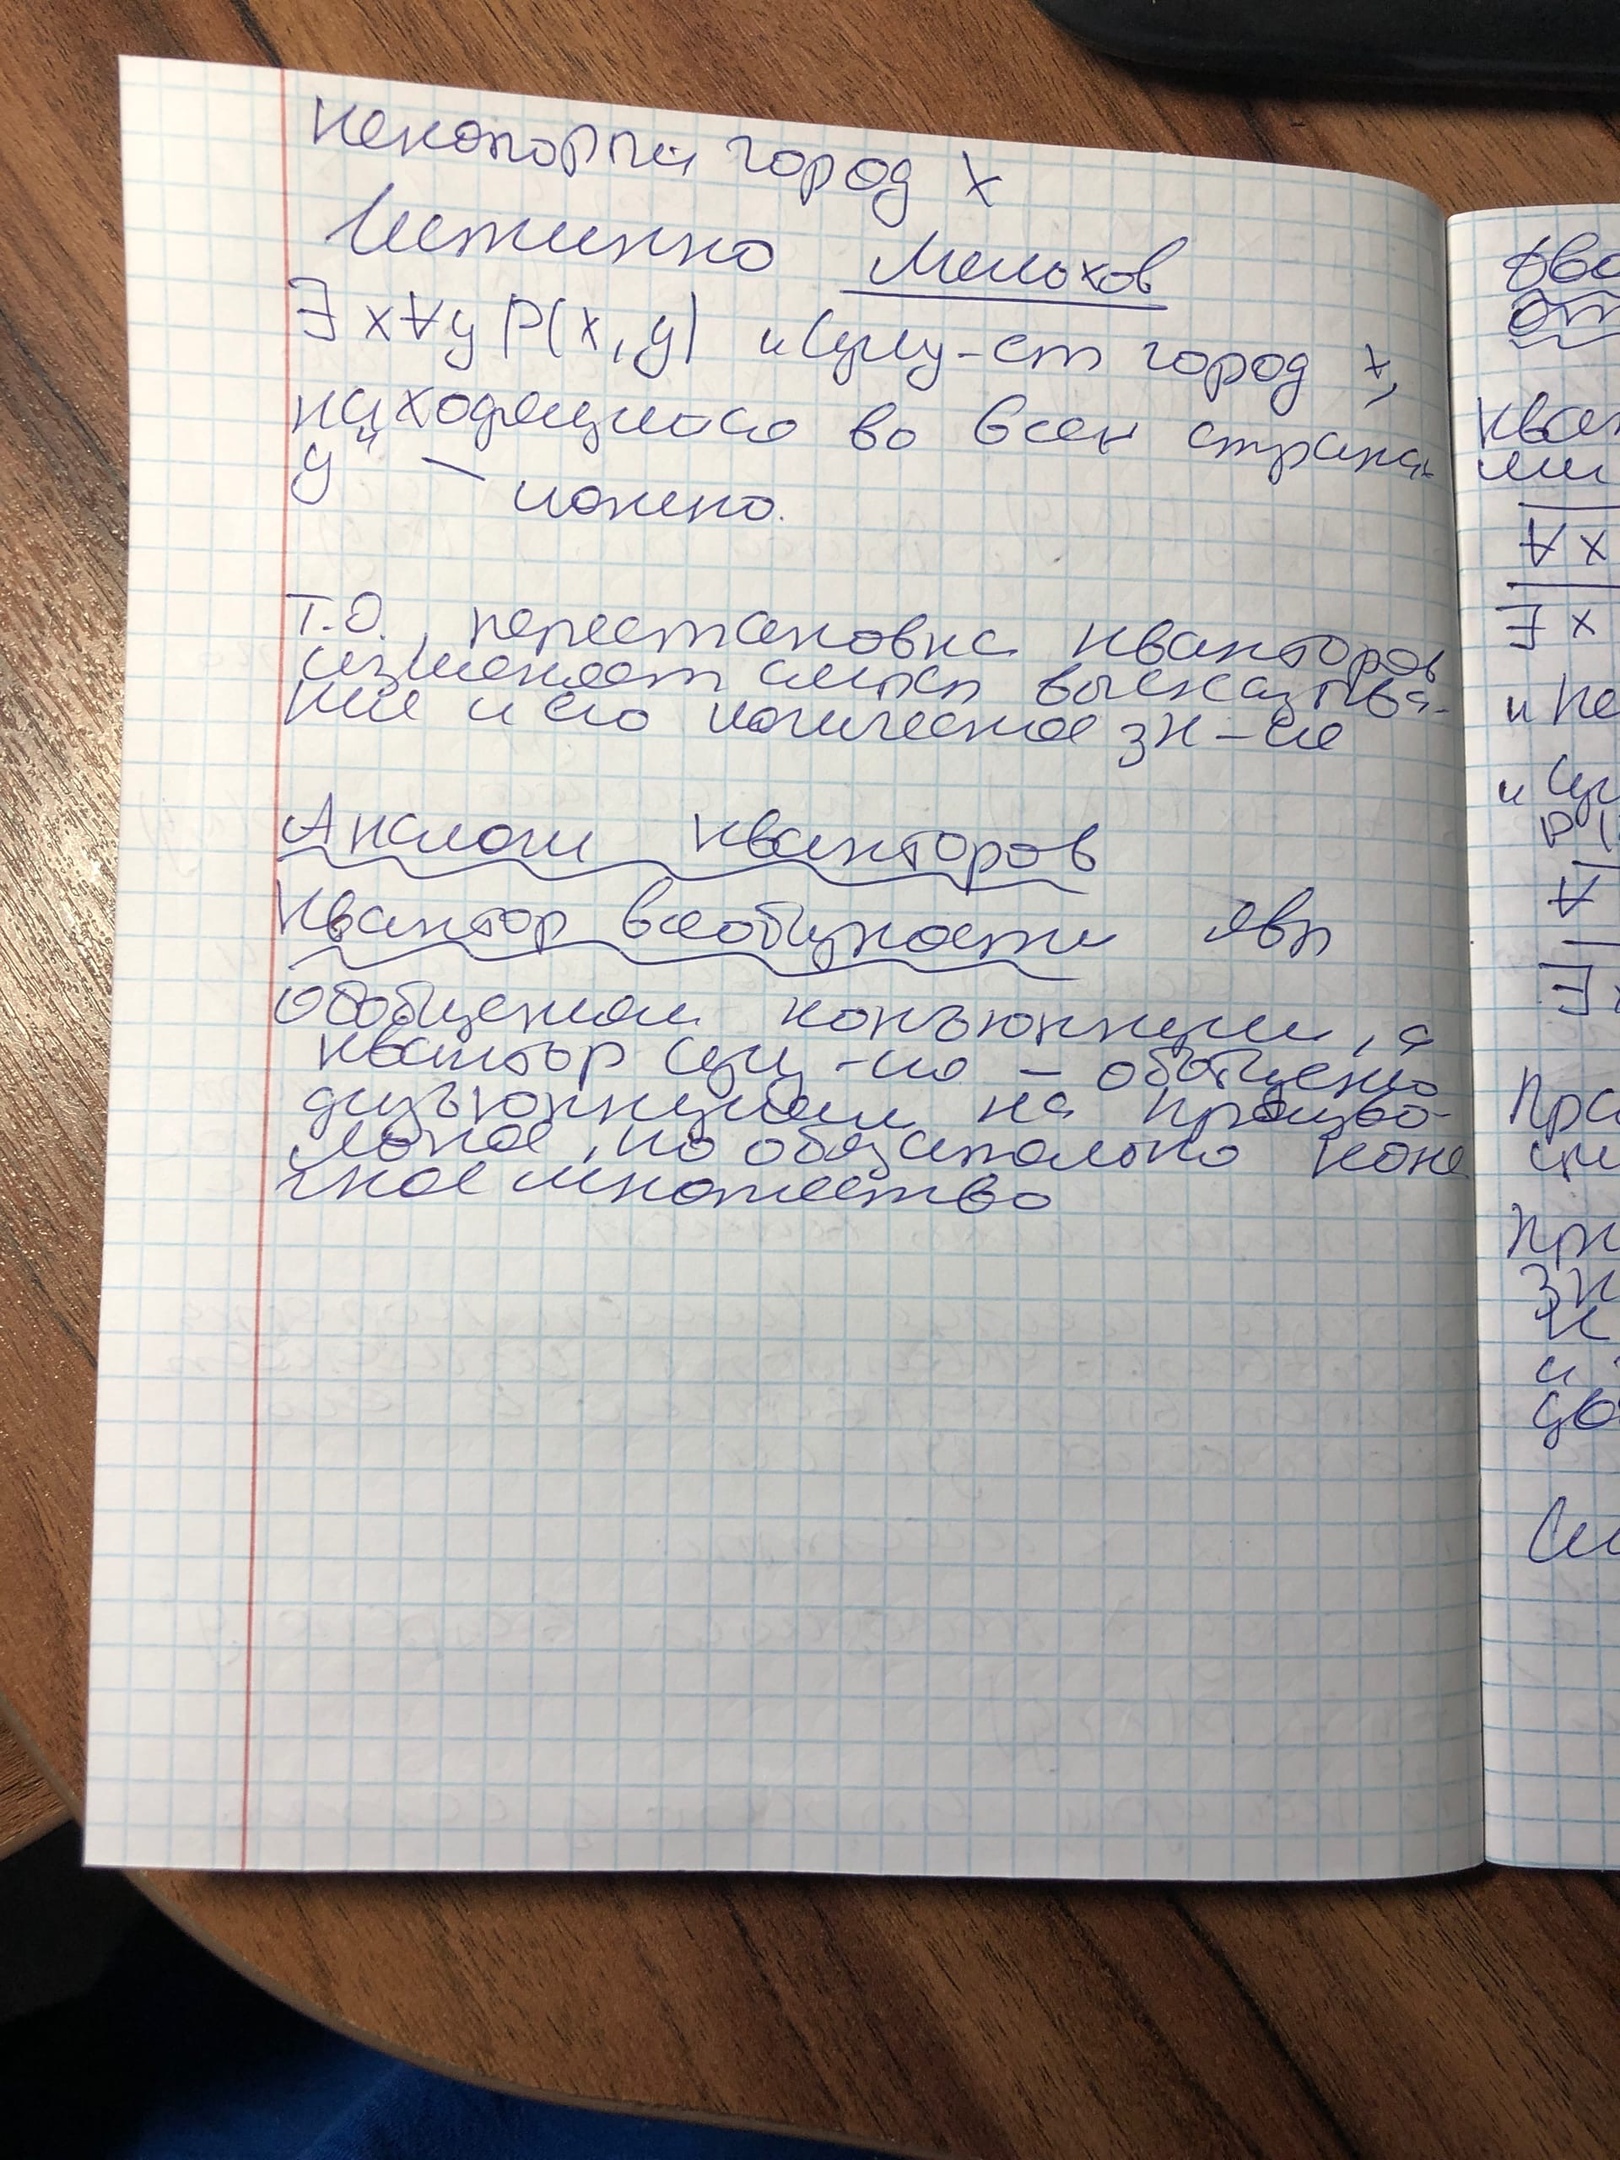 некоторый город x
Истинно Мелохов
∃x∀y P(x,y) "Сущу-ет город x,
находящийся во всех странах
y" – ложно.
Т.О., перестановка кванторов
изменяет смысл высказыва-
ния и его логическое зн-ие
Аналоги кванторов
Квантор всеобщности явл
обобщением конъюнкции, а
квантор сущ-ия – обобщено
дизъюнкцией на произво-
льное, но обязательно коне
чное множество
ква
∀x
∃x
и не
и Су
P(
∀
∃
Пр
При
зн
и
до